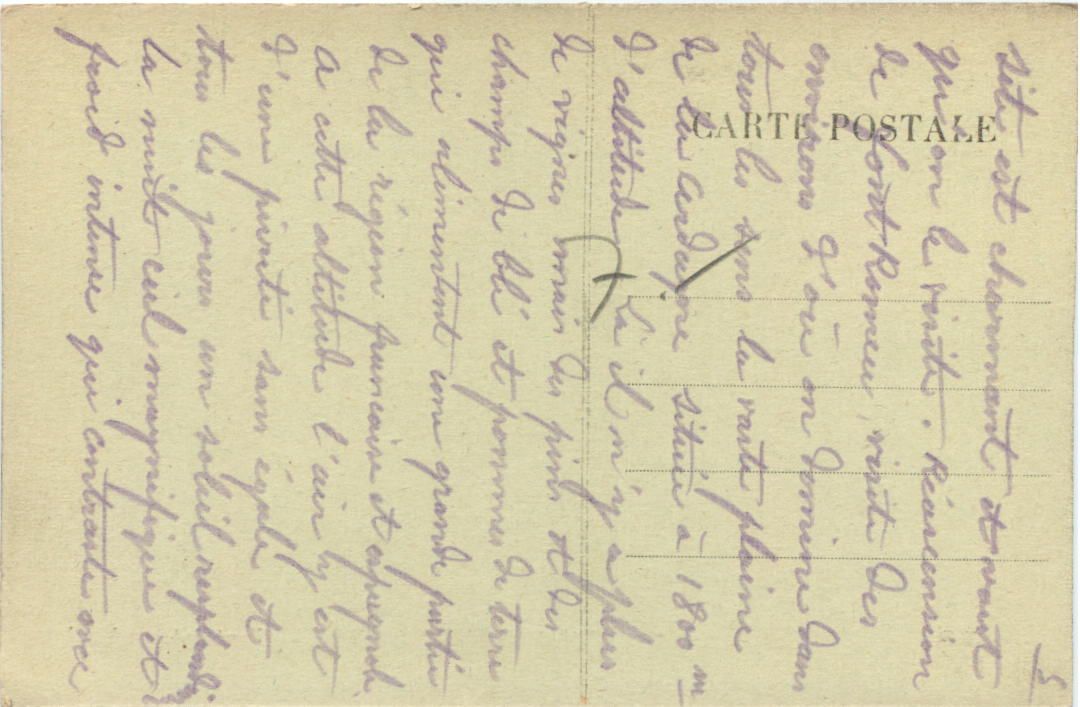 CARTE POSTALE
5
site est charmant et vaut
qu'on le visite. Réascension
de Font Romeu, visite des
environs d'où on domine dans
tous les sens la vaste plaine
de la Cerdagne située à 1800 m
d'altitude. Là il n'y a plus
de vignes mais des pins et des
champs de blé et pommes de terre
qui alimentent une grande partie
de la région française et espagnole
A cette altitude l'air y est
d'une pureté sans égale et
tous les jours un soleil resplendis
La nuit ciel magnifique et
froid intense qui contraste avec